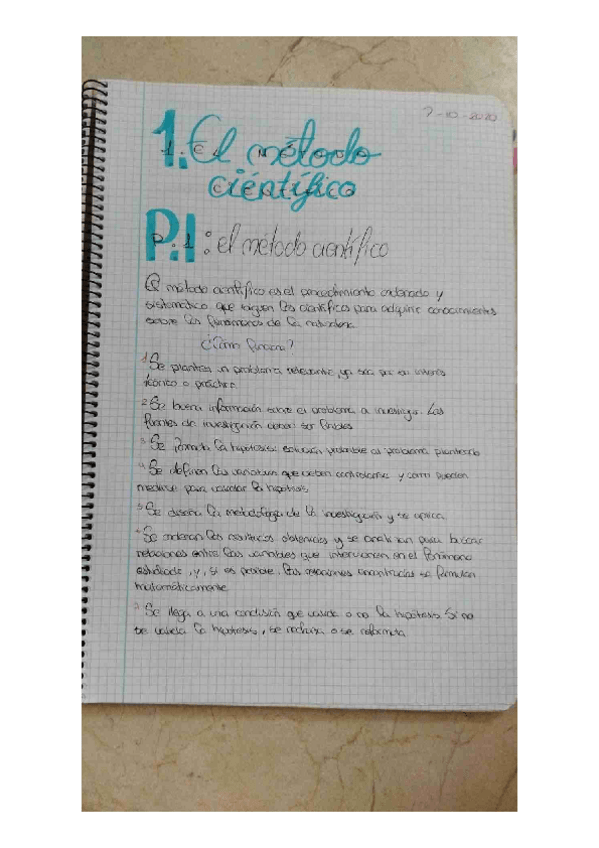 7-10-2020
1. El método
científico
P.1: el método científico
El método científico es el procedimiento ordenado y
sistemático que siguen los científicos para adquirir conocimientos
sobre los fenómenos de la naturaleza.
¿Cómo funciona?
1. Se plantea un problema relevante, ya sea por su interés
teórico o práctico.
2. Se busca información sobre el problema a investigar. Las
fuentes de investigación deben ser fiables
3. Se formula la hipótesis: solución probable al problema planteado
4. Se definen las variables que deben controlarse y como pueden
medirse para validar la hipótesis
5. Se diseña la metodología de la investigación y se aplica.
6. Se ordenan los resultados obtenidos y se analizan para buscar
relaciones entre las variables que intervienen en el fenómeno
estudiado, y, si es posible, las relaciones encontradas se formulan
matemáticamente
7. Se llega a una conclusión que valida o no la hipótesis. Si no
se valida la hipótesis, se rechaza o se reformula